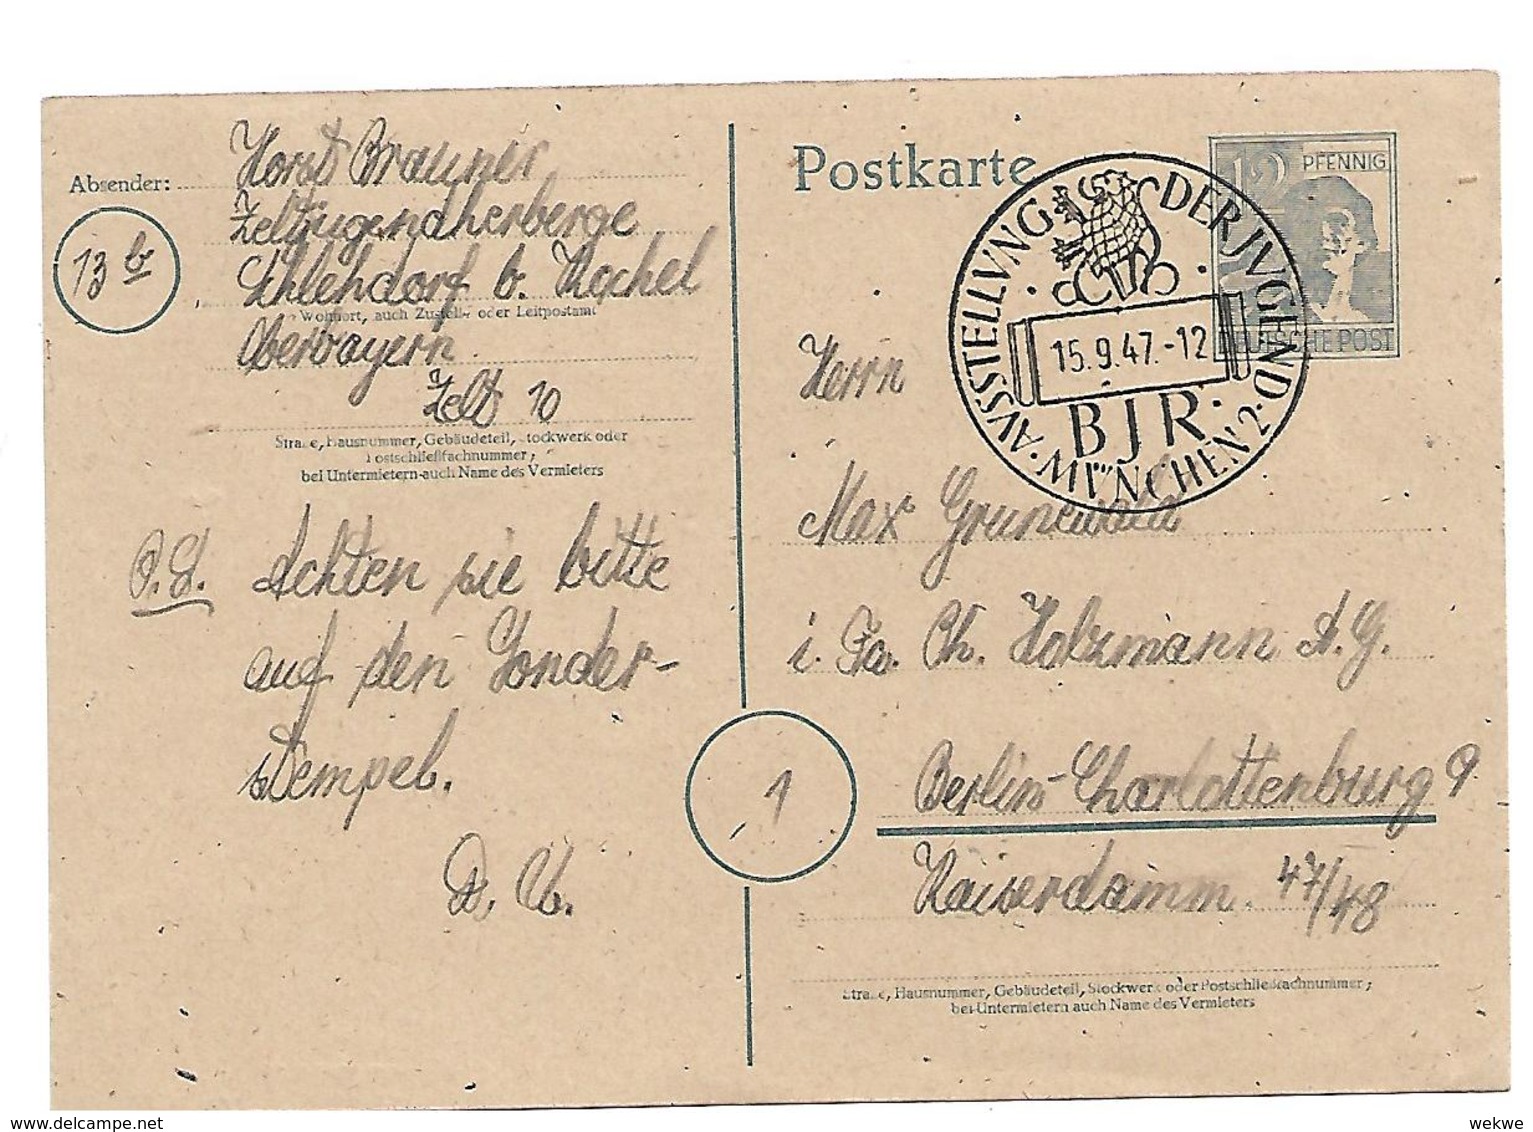 Absender:
Horst Brauner
Zeltjugendherberge
Schlehdorf b. Kochel
Wohnort, auch Zustell- oder Leitpostamt
Oberbayern
Zelt 10
Straße, Hausnummer, Gebäudeteil, Stockwerk oder
Postschließfachnummer;
bei Untermietern auch Name des Vermieters
13 b
P.S. Achten sie bitte
auf den Sonder-
stempel.
D. O.
Postkarte
12 PFENNIG
DEUTSCHE POST
AVSSTELLVNG DER JVGEND
15.9.47.-12
BJR
MÜNCHEN 2
Herrn
Max Grunewald
i. Fa. Ph. Holzmann A.G.
1
Berlin-Charlottenburg 9
Kaiserdamm. 47/48
Straße, Hausnummer, Gebäudeteil, Stockwerk oder Postschließfachnummer;
bei Untermietern auch Name des Vermieters
wekwe